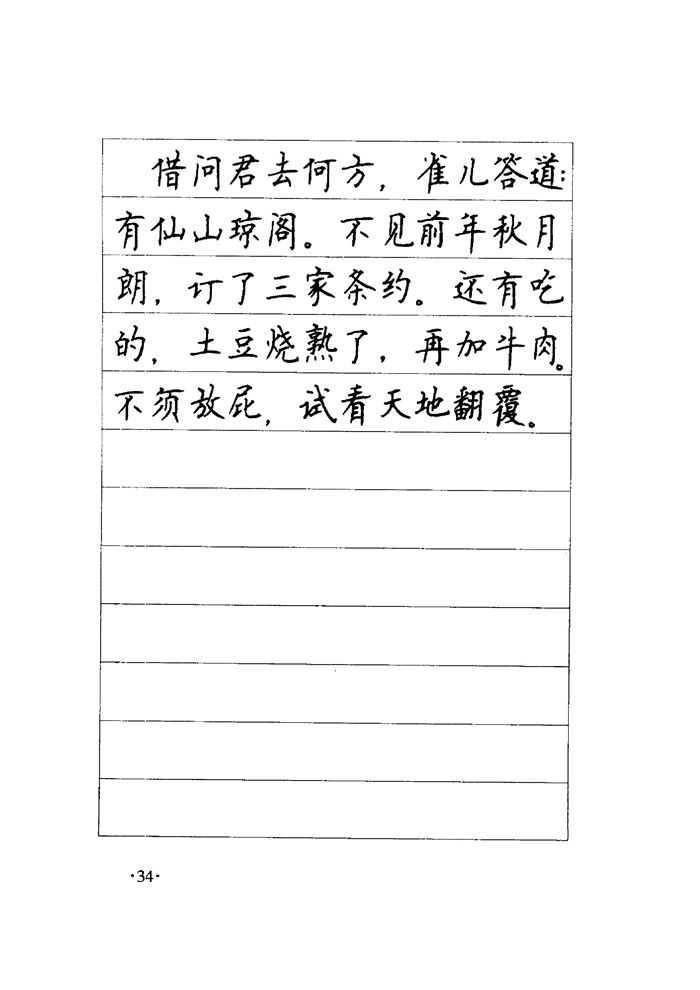 借问君去何方，雀儿答道：
有仙山琼阁。不见前年秋月
朗，订了三家条约。还有吃
的，土豆烧熟了，再加牛肉。
不须放屁，试看天地翻覆。
·34·